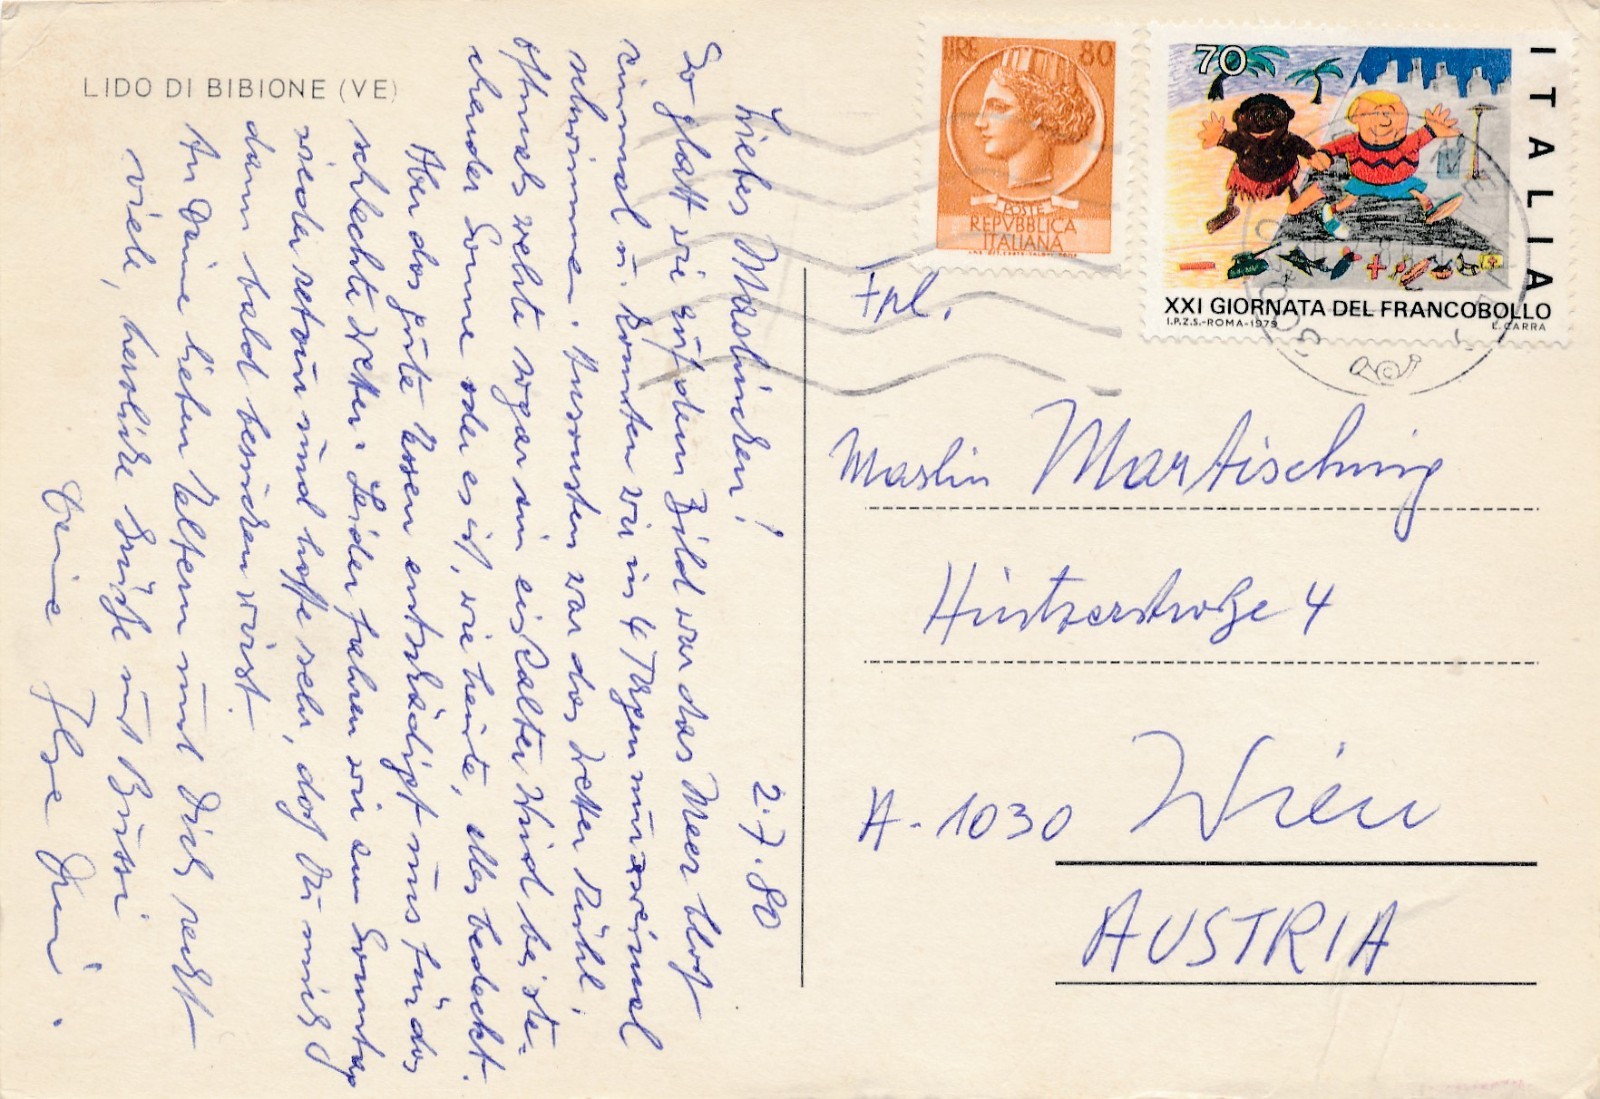 LIDO DI BIBIONE (VE)
2.7.80
Liebes Maslinchen!
So glatt wie auf dem Bild war das Meer bloß
einmal u. konnten wir in 4 Tagen nur zweimal
schwimmen. Ansonsten war das Wetter kühl,
oftmals wehte sogar ein eiskalter Wind bei ste-
chender Sonne oder es ist, wie heute, alles bedeckt.
Aber das gute Essen entschädigt uns für das
schlechte Wetter. Leider fahren wir am Sonntag
wieder retour und hoffe sehr, daß Du mich
dann bald besuchen wirst.
An Deine lieben Eltern und Dich recht
viele, herzliche Grüße und Bussi
Deine Ilse
LIRE 80
POSTE
REPVBBLICA
ITALIANA
70
ITALIA
XXI GIORNATA DEL FRANCOBOLLO
I.P.Z.S.-ROMA-1979 L. CARRA
Frl.
Maslin Martisching
Hintzerstraße 4
A-1030 Wien
AUSTRIA